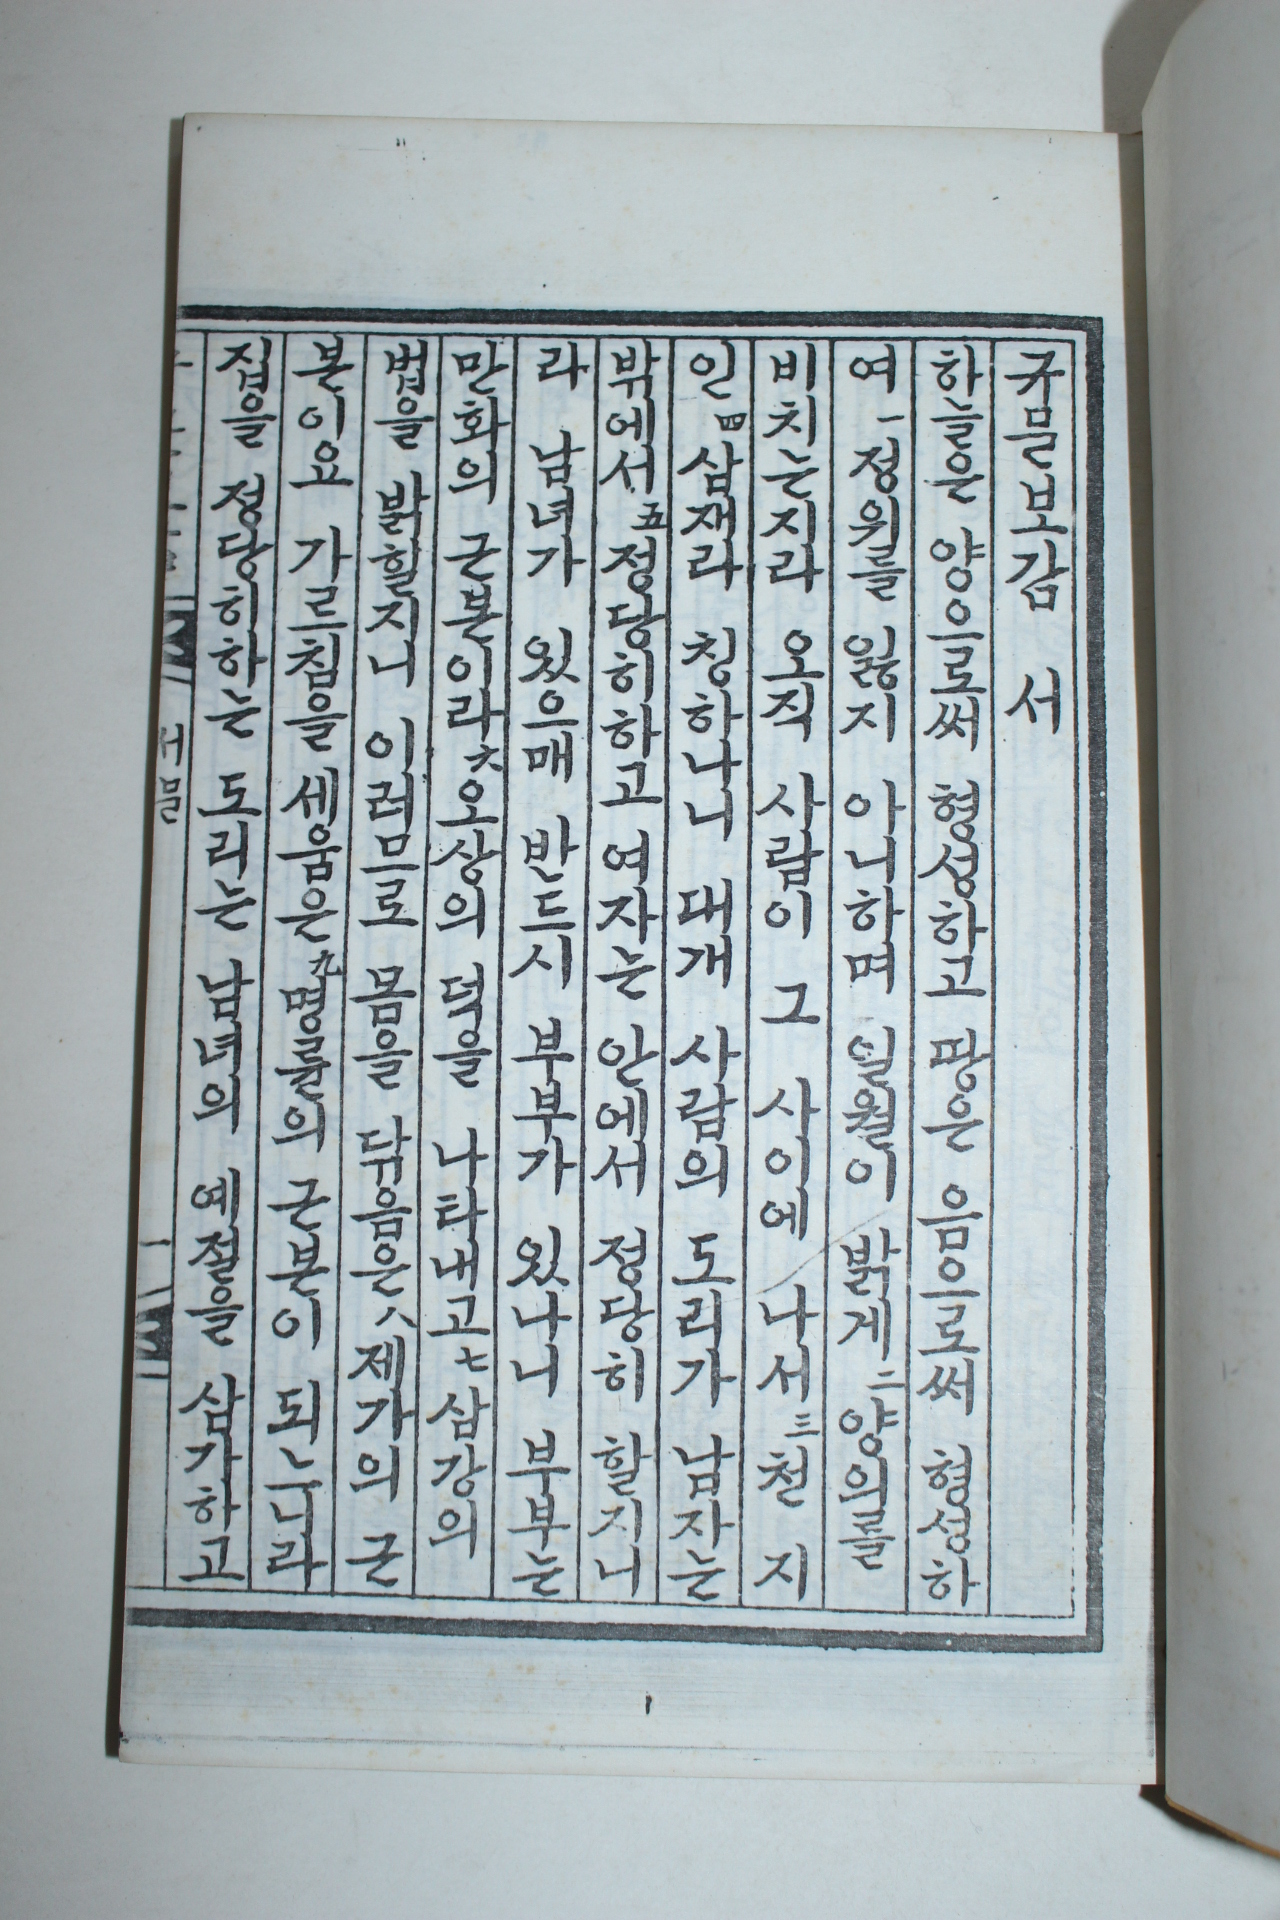 규문보감 서
하늘은 양으로써 형성하고 땅은 음으로써 형성하
여 一정위를 잃지 아니하며 일월이 밝게 二양의를
비치는지라 오직 사람이 그 사이에 나서 三천 지
인 四삼재라 칭하나니 대개 사람의 도리가 남자는
밖에서 五정당히하고 여자는 안에서 정당히 할지니
라 남녀가 있으매 반드시 부부가 있나니 부부는
만화의 근본이라 六오상의 덕을 나타내고 七삼강의
법을 밝힐지니 이러므로 몸을 닦음은 八제가의 근
본이요 가르침을 세움은 九명륜의 근본이 되느니라
집을 정당히하는 도리는 남녀의 예절을 삼가하고
서문
一